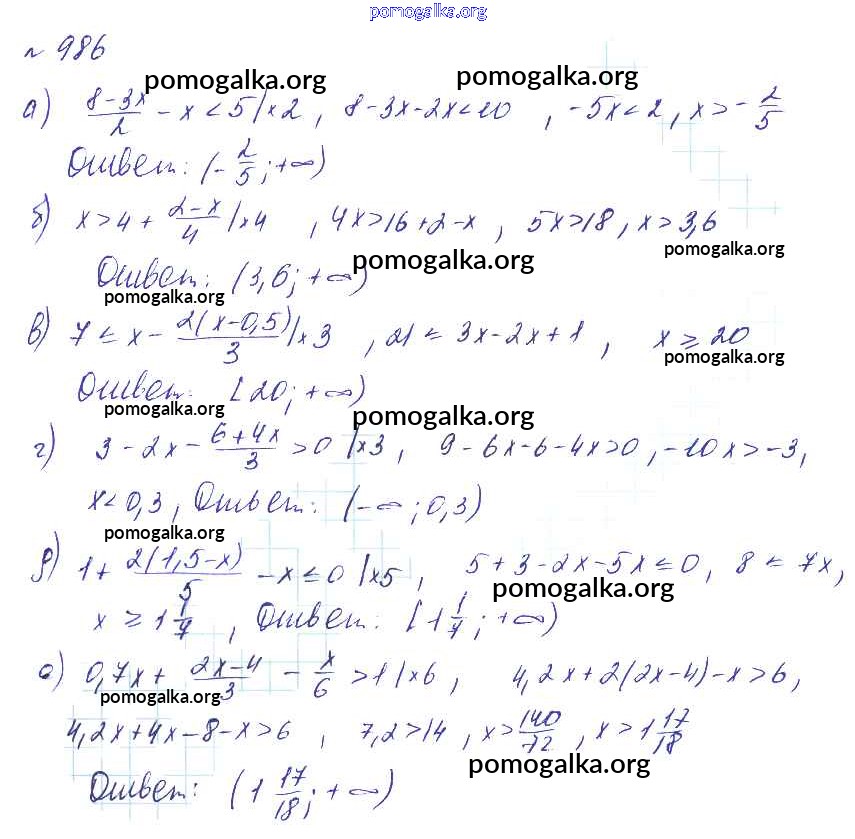 pomogalka.org
№ 986
pomogalka.org pomogalka.org
а) (8-3x)/2 - x < 5 |×2, 8-3x-2x<10, -5x<2, x>-2/5
Ответ: (-2/5; +∞)
б) x>4 + (2-x)/4 |×4, 4x>16+2-x, 5x>18, x>3,6
pomogalka.org
Ответ: (3,6; +∞)
pomogalka.org
pomogalka.org
в) 7 ≤ x - 2(x-0,5)/3 |×3, 21 ≤ 3x-2x+1, x ≥ 20
pomogalka.org
Ответ: [20; +∞)
pomogalka.org pomogalka.org
г) 3-2x - (6+4x)/3 > 0 |×3, 9-6x-6-4x>0, -10x>-3,
x<0,3, Ответ: (-∞; 0,3)
pomogalka.org
д) 1 + 2(1,5-x)/5 - x ≤ 0 |×5, 5+3-2x-5x ≤ 0, 8 ≤ 7x,
pomogalka.org
x ≥ 1 1/7, Ответ: [1 1/7; +∞)
е) 0,7x + (2x-4)/3 - x/6 > 1 |×6, 4,2x+2(2x-4)-x>6,
pomogalka.org
4,2x+4x-8-x>6, 7,2>14, x>140/72, x>1 17/18
pomogalka.org
Ответ: (1 17/18; +∞)